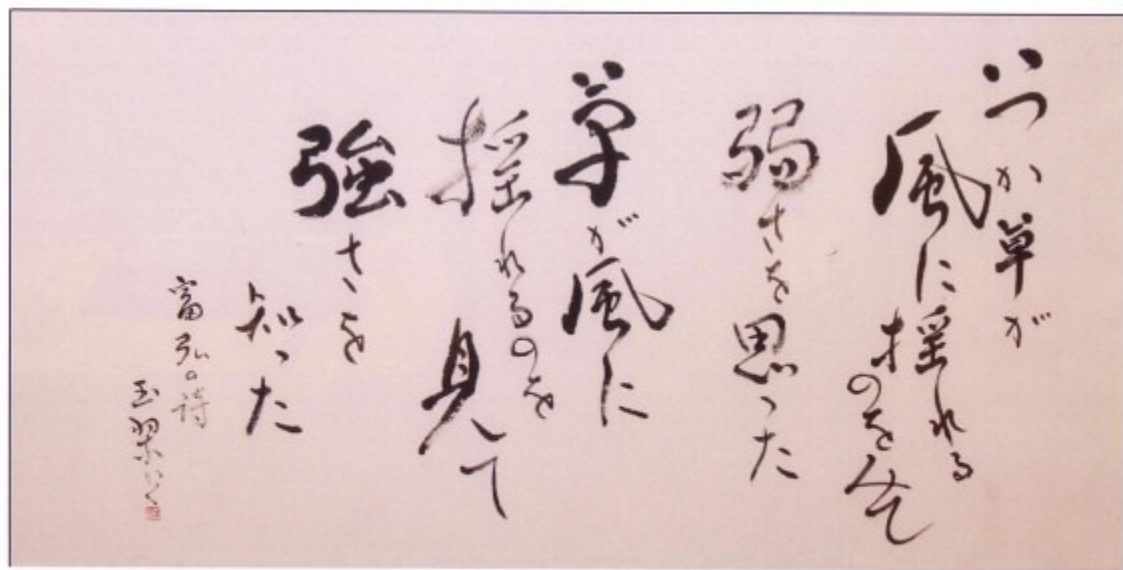 いつか草が
風に揺れる
のをみて
弱さを思った
草が風に
揺れるのを
見て
強さを
知った
富弘の詩
玉翠かく